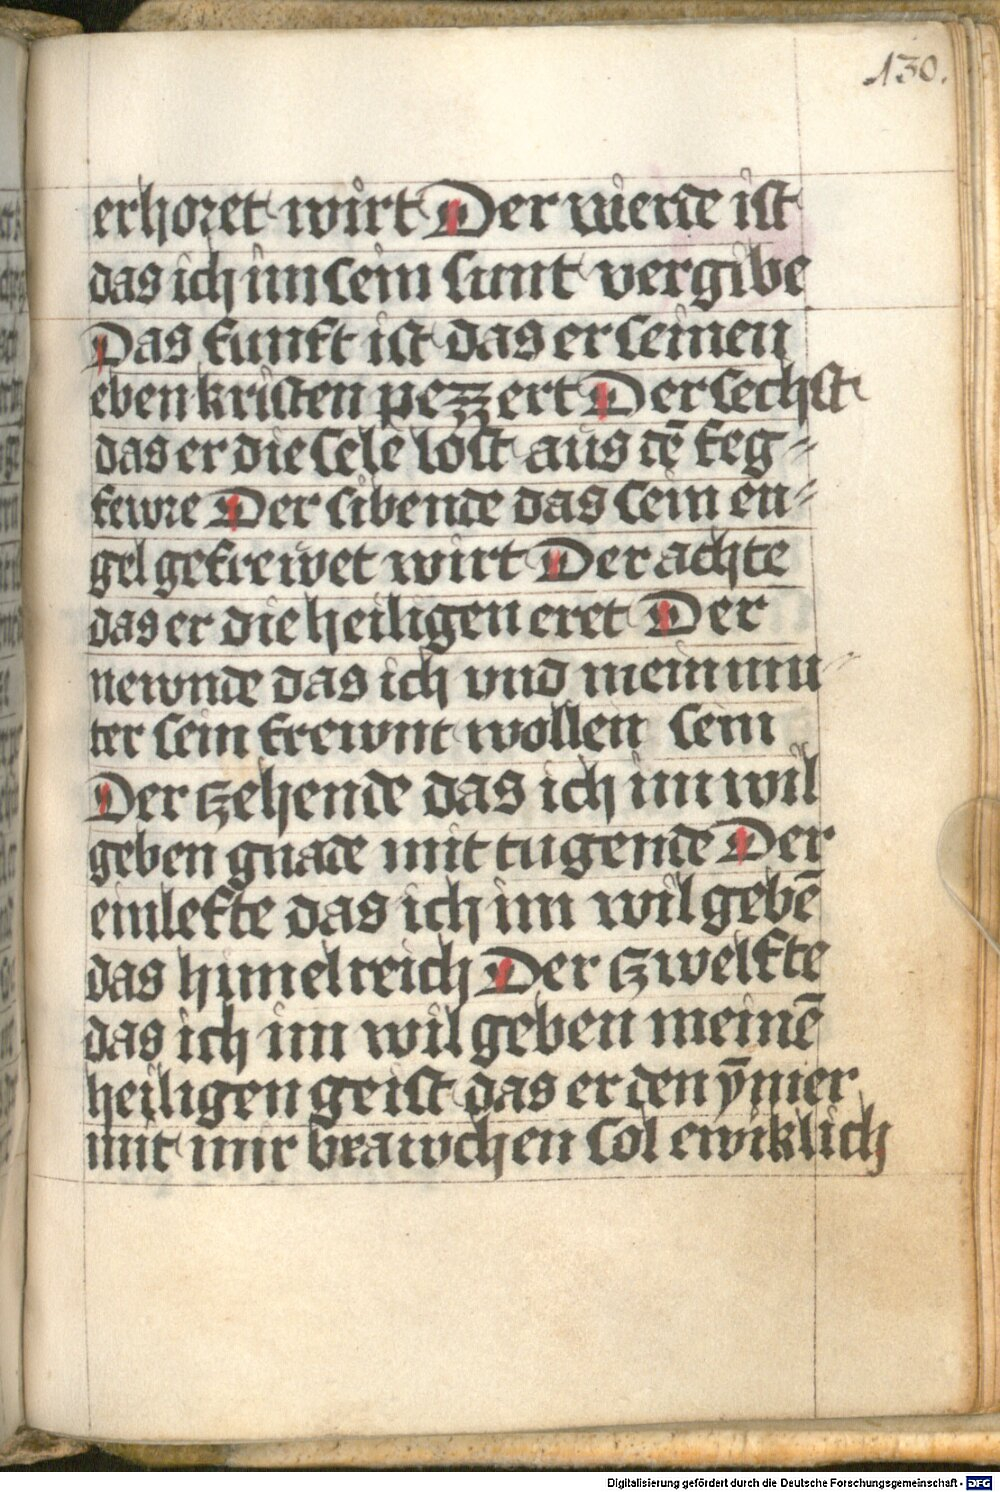 130.
erhoret wirt Der vierde ist
das ich im sein sunt vergibe
Das funft ist das er seinen
ebenkristen pezzert Der sechst
das er die sele lost aus dē feg-
fewre Der sibende das sein en-
gel gefrewet wirt Der achte
das er die heiligen eret Der
newnde das ich vnd mein mu-
ter sein frewnt wollen sein
Der zehende das ich im wil
geben gnade mit tugende Der
einlefte das ich im wil gebē
das himelreich Der zwelfte
das ich im wil geben meinē
heiligen geist das er den ymer
mit mir brawchen sol ewiklich
Digitalisierung gefördert durch die Deutsche Forschungsgemeinschaft - DFG